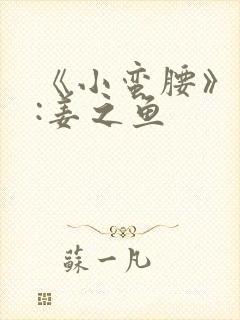 《小蛮腰》
:姜之鱼
蘇一凡